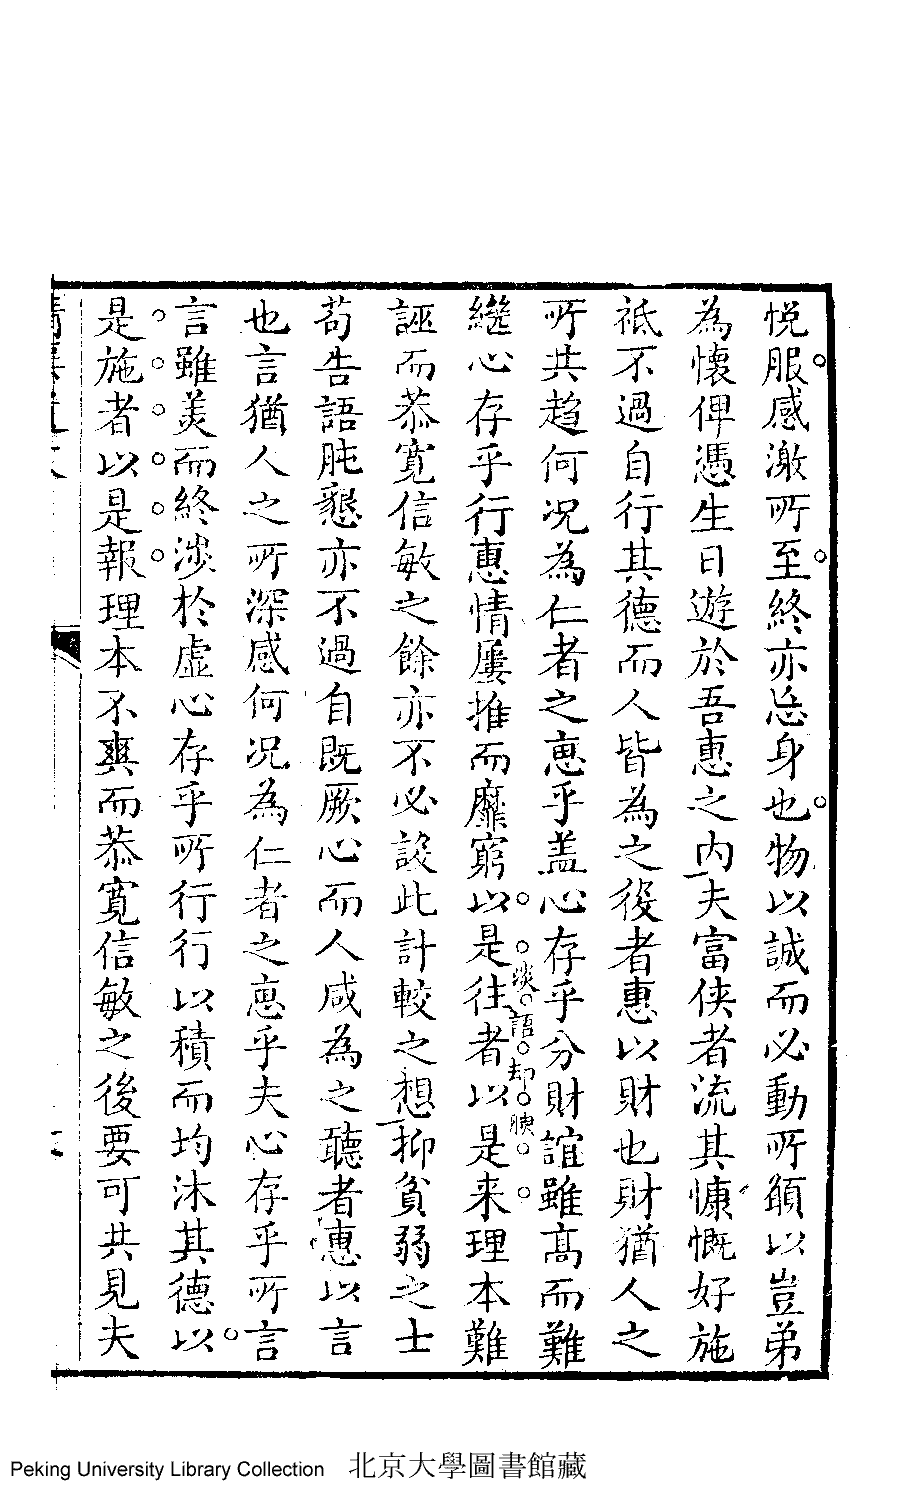 悦服感激所至終亦忘身也物以誠而必動所願以豈弟
為懷俾憑生日遊於吾惠之内夫富俠者流其慷慨好施
祗不過自行其德而人皆為之役者惠以財也財猶人之
所共趨何况為仁者之恵乎盖心存乎分財誼雖高而難
繼心存乎行惠情屢推而靡窮以是往者以是来理本難
淡語却腴
誣而恭寬信敏之餘亦不必設此計較之想抑貧弱之士
苟告語肫懇亦不過自既厥心而人咸為之聽者惠以言
也言猶人之所深感何况為仁者之恵乎夫心存乎所言
言雖美而終涉於虛心存乎所行行以積而均沐其德以
是施者以是報理本不爽而恭寬信敏之後要可共見夫
Peking University Library Collection 北京大學圖書館藏